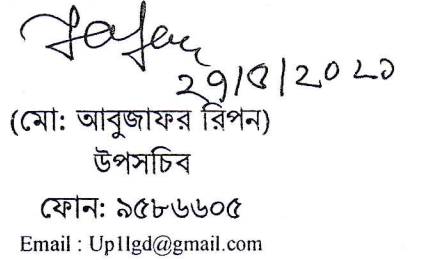 ২৭/৫/২০২১
(মো: আবুজাফর রিপন)
উপসচিব
ফোন: ৯৫৮৬৬০৫
Email : Up1lgd@gmail.com